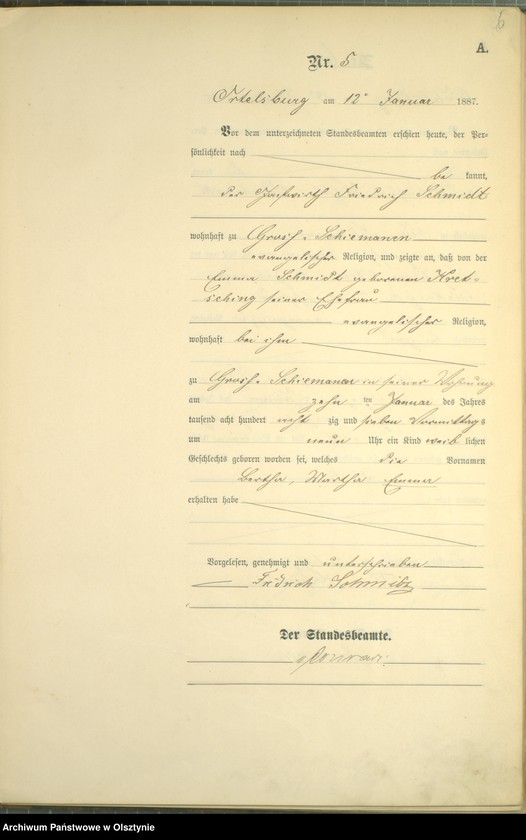 6
A.
Nr. 5
Ortelsburg am 12ᵗ Januar 1887.
Vor dem unterzeichneten Standesbeamten erschien heute, der Per-
sönlichkeit nach
be kannt,
der Friedrich Schmidt
wohnhaft zu Groß-Schiemanen
evangelischer Religion, und zeigte an, daß von der
Emma Schmidt geborenen Kret-
sching seiner Ehefrau
evangelischer Religion,
wohnhaft bei ihm
zu Groß-Schiemanen in seiner Wohnung
am zehn ten Januar des Jahres
tausend acht hundert acht zig und sieben Vormittags
um neun Uhr ein Kind weib lichen
Geschlechts geboren worden sei, welches die Vornamen
Bertha, Martha Emma
erhalten habe
Vorgelesen, genehmigt und unterschrieben
Fridrich Schmidt
Der Standesbeamte.
Archiwum Państwowe w Olsztynie